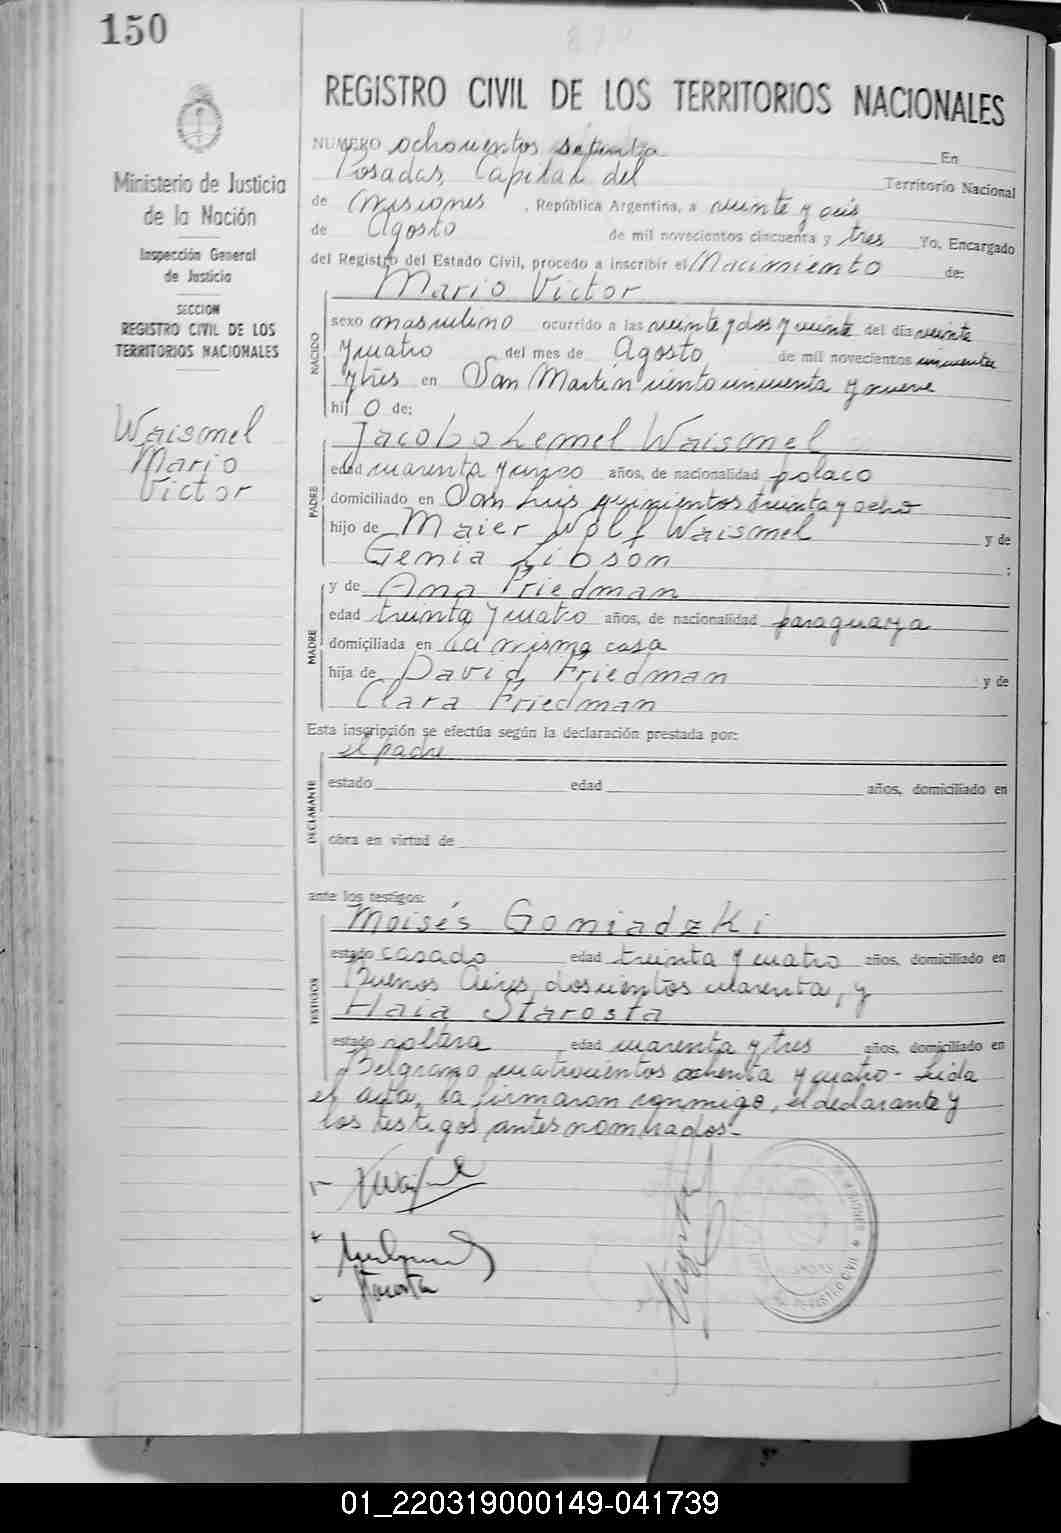 150
REGISTRO CIVIL DE LOS TERRITORIOS NACIONALES
Ministerio de Justicia
de la Nación
Inspección General
de Justicia
SECCION
REGISTRO CIVIL DE LOS
TERRITORIOS NACIONALES
Waismel
Mario
Victor
NUMERO ochocientos setenta En
Posadas, Capital del Territorio Nacional
de Misiones, República Argentina, a veinte y seis
de Agosto de mil novecientos cincuenta y tres Yo, Encargado
del Registro del Estado Civil, procedo a inscribir el Nacimiento de:
Mario Victor
NACIDO
sexo masculino ocurrido a las veinte y dos y veinte del día veinte
y cuatro del mes de Agosto de mil novecientos cincuenta
y tres en San Martín ciento cincuenta y nueve
hij o de:
Jacobo Lemel Waismel
PADRE
edad cuarenta y cinco años, de nacionalidad polaco
domiciliado en San Luis quinientos treinta y ocho
hijo de Maier Wolf Waismel y de
Genia Libson ;
y de Ana Friedman
MADRE
edad treinta y cuatro años, de nacionalidad paraguaya
domiciliada en la misma casa
hija de David Friedman y de
Clara Friedman
Esta inscripción se efectúa según la declaración prestada por:
el padre
DECLARANTE
estado edad años, domiciliado en
obra en virtud de
ante los testigos:
Moisés Goniadzki
TESTIGOS
estado casado edad treinta y cuatro años, domiciliado en
Buenos Aires, doscientos cuarenta, y
Haia Starosta
estado soltera edad cuarenta y tres años, domiciliado en
Belgrano cuatrocientos ochenta y cuatro - Leida
el acta, la firmaron conmigo, el declarante y
los testigos antes nombrados.-
REGISTRO CIVIL
01_220319000149-041739